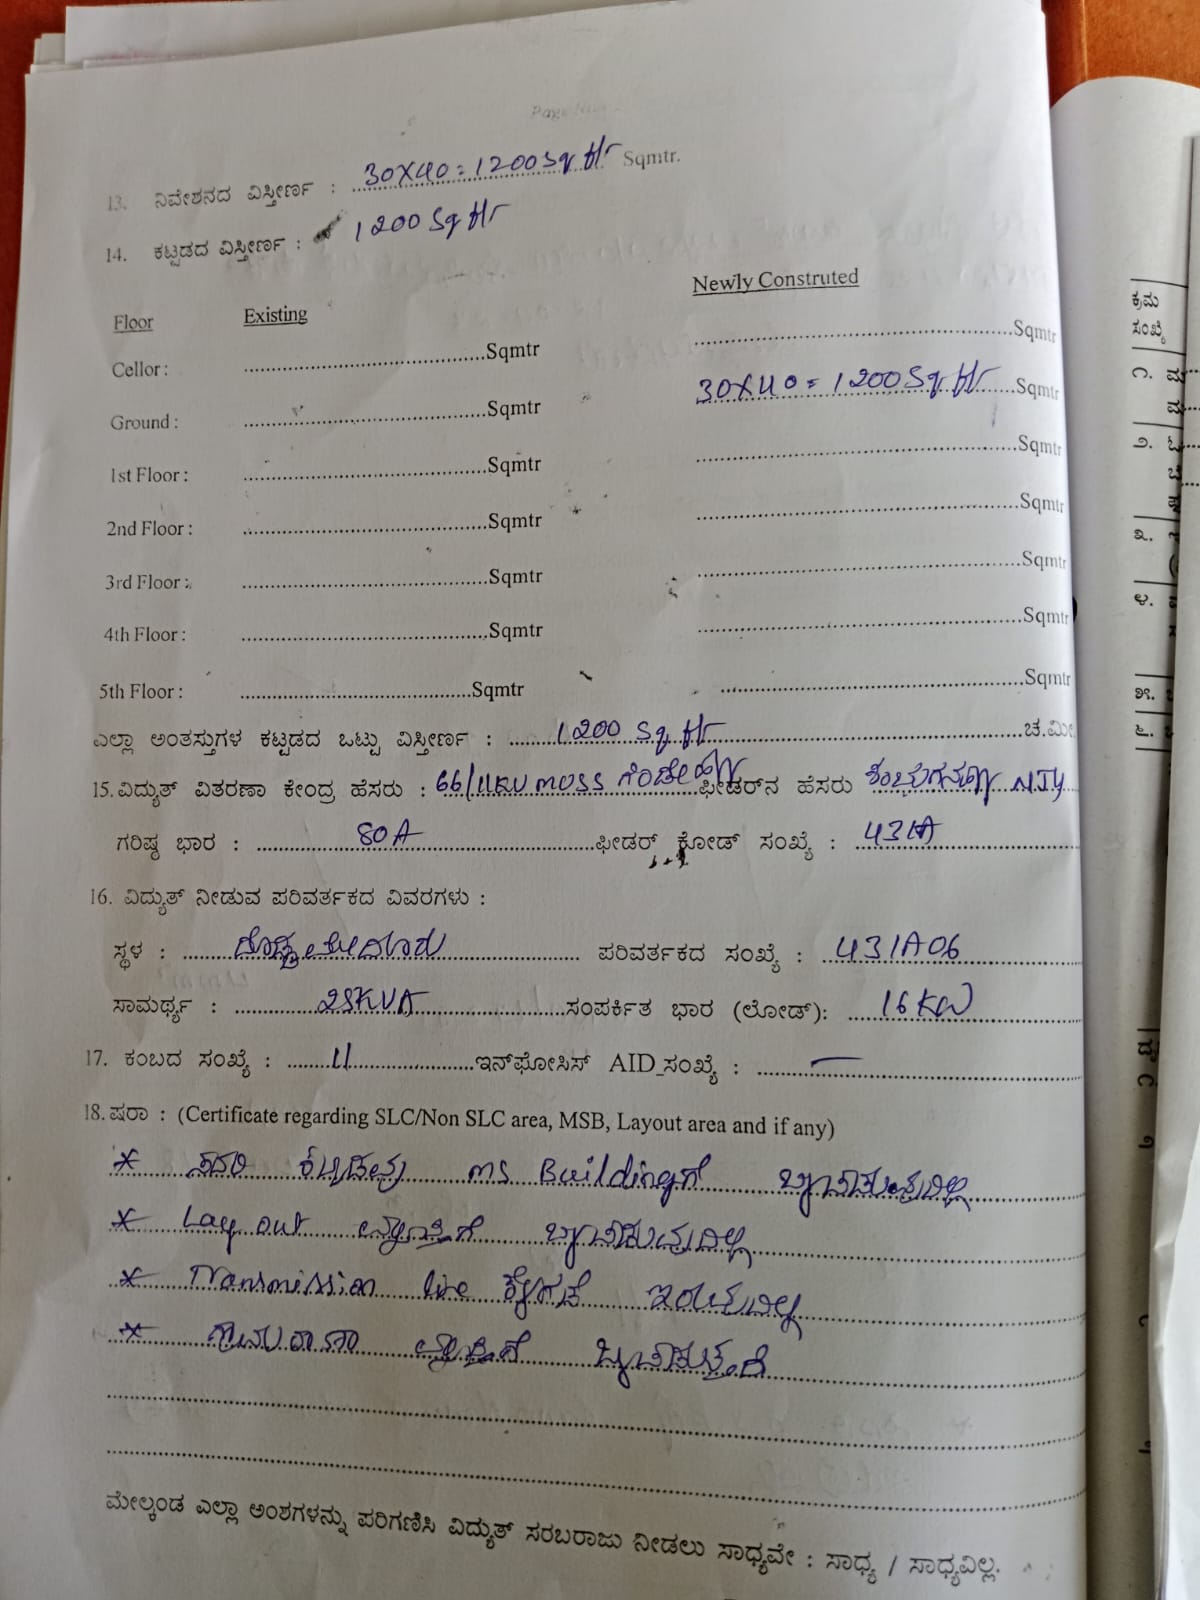 13. ನಿವೇಶನದ ವಿಸ್ತೀರ್ಣ : 30X40=1200 Sq ftr Sqmtr.
14. ಕಟ್ಟಡದ ವಿಸ್ತೀರ್ಣ : 1200 Sq ftr
Newly Construted
Floor Existing
Cellor : ..........Sqmtr ..........Sqmtr
Ground : ..........Sqmtr 30X40=1200 Sq ftr Sqmtr
1st Floor : ..........Sqmtr ..........Sqmtr
2nd Floor : ..........Sqmtr ..........Sqmtr
3rd Floor : ..........Sqmtr ..........Sqmtr
4th Floor : ..........Sqmtr ..........Sqmtr
5th Floor : ..........Sqmtr ..........Sqmtr
ಎಲ್ಲಾ ಅಂತಸ್ತುಗಳ ಕಟ್ಟಡದ ಒಟ್ಟು ವಿಸ್ತೀರ್ಣ : 1200 Sq ftr ಚ.ಮೀ
15. ವಿದ್ಯುತ್ ವಿತರಣಾ ಕೇಂದ್ರ ಹೆಸರು : 66/11KV MUSS ಫೀಡರ್‌ನ ಹೆಸರು NJY
ಗರಿಷ್ಠ ಭಾರ : 80A ಫೀಡರ್ ಕೋಡ್ ಸಂಖ್ಯೆ : 431A
16. ವಿದ್ಯುತ್ ನೀಡುವ ಪರಿವರ್ತಕದ ವಿವರಗಳು :
ಸ್ಥಳ : ಪರಿವರ್ತಕದ ಸಂಖ್ಯೆ : 431A06
ಸಾಮರ್ಥ್ಯ : 25KVA ಸಂಪರ್ಕಿತ ಭಾರ (ಲೋಡ್): 16KW
17. ಕಂಬದ ಸಂಖ್ಯೆ : 11 ಇನ್‌ಫೋಸಿಸ್ AID_ಸಂಖ್ಯೆ : —
18. ಷರಾ : (Certificate regarding SLC/Non SLC area, MSB, Layout area and if any)
* ಸದರಿ ಕಟ್ಟಡವು MS Buildingಗೆ ಒಳಪಡುವುದಿಲ್ಲ
* Lay out ವ್ಯಾಪ್ತಿಗೆ ಒಳಪಡುವುದಿಲ್ಲ
* Transmission line ಕೆಳಗಡೆ ಇರುವುದಿಲ್ಲ
* ಗ್ರಾಮಠಾಣಾ ವ್ಯಾಪ್ತಿಗೆ ಒಳಪಡುತ್ತದೆ
ಮೇಲ್ಕಂಡ ಎಲ್ಲಾ ಅಂಶಗಳನ್ನು ಪರಿಗಣಿಸಿ ವಿದ್ಯುತ್ ಸರಬರಾಜು ನೀಡಲು ಸಾಧ್ಯವೇ : ಸಾಧ್ಯ / ಸಾಧ್ಯವಿಲ್ಲ.
ಕ್ರಮ
ಸಂಖ್ಯೆ
೧.
೨.
೩.
೪.
೫.
೬.